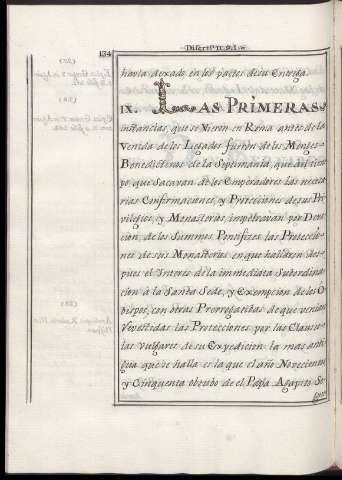 134
havia dexado en los pactos de su Entrega.
IX. LAS PRIMERAS
instancias, que se Vieron en Roma antes de la
Venida de los Legados fueron de los Monges
Benedictinos de la Septimania, que al tiem-
po, que Sacavan de los Emperadores las neces-
rias Confirmaciones, y Protecciones de sus Pri-
vilegios, y Monasterios, impetravan por Devo-
cion, de los Summos Pontifizes las Proteccio-
nes de sus Monasterios en que hallaron des-
pues el Interés de la immediata Subordina-
cion a la Santa Sede, y Exempcion de los O-
bispos, con otras Prerrogativas de que venian
Vovestidas las Protecciones por las Clausu-
las vulgares de su Expedicion la mas anti-
gua que se halla es la que el año Novecientos
y Cinquenta obtubo de el Papa Agapito Se-